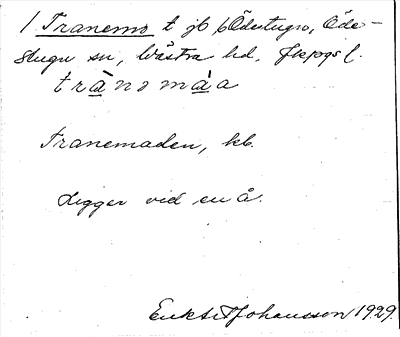 1 Tranemo t jb 6 Ödestugu, Öde-
stugu sn, Västra hd, Jkpgs l.
trànomàa
Tranemaden, kb.
Ligger vid en å.
Johansson 1929.